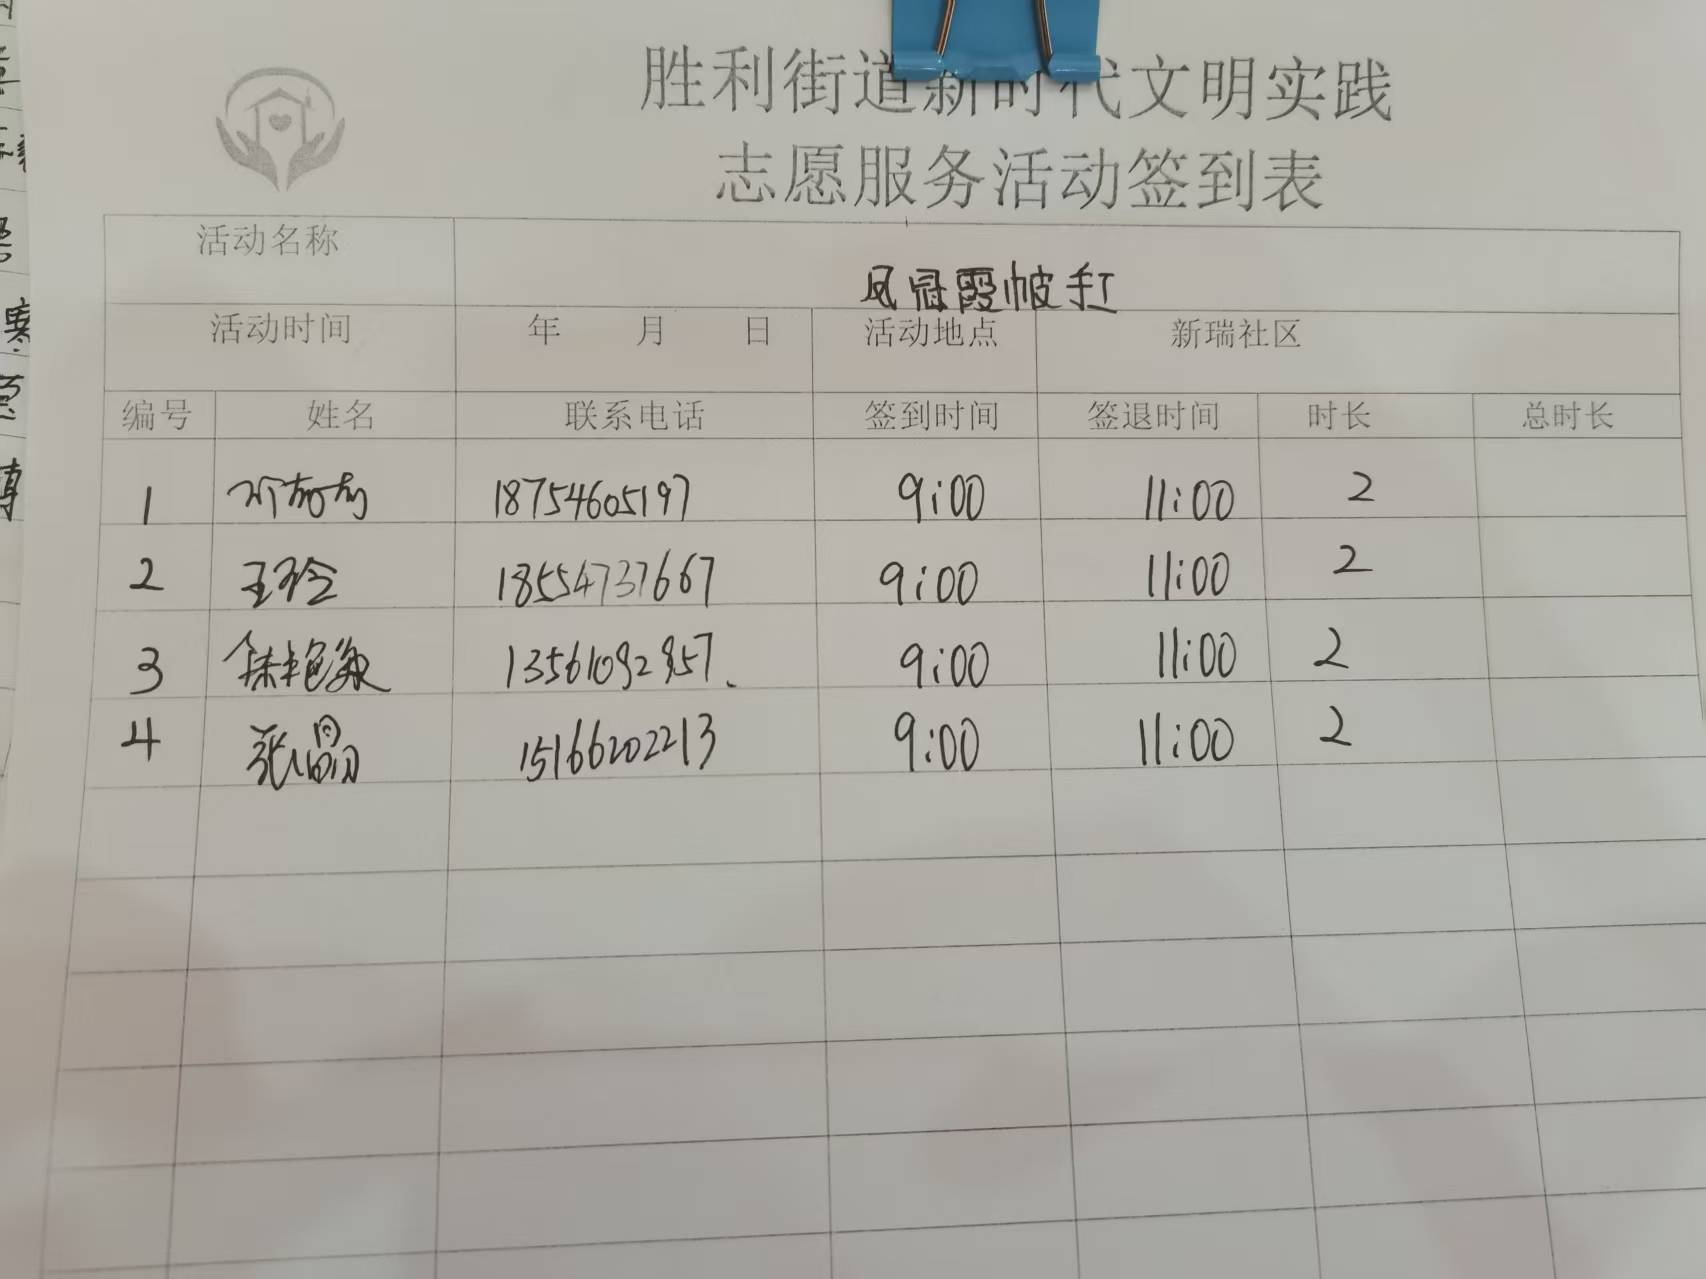 胜利街道新时代文明实践
志愿服务活动签到表
活动名称 凤冠霞帔手工
活动时间 年 月 日 活动地点 新瑞社区
编号 姓名 联系电话 签到时间 签退时间 时长 总时长
1 18754605197 9:00 11:00 2
2 王玲 18554737667 9:00 11:00 2
3 9:00 11:00 2
4 张晶 15166202213 9:00 11:00 2